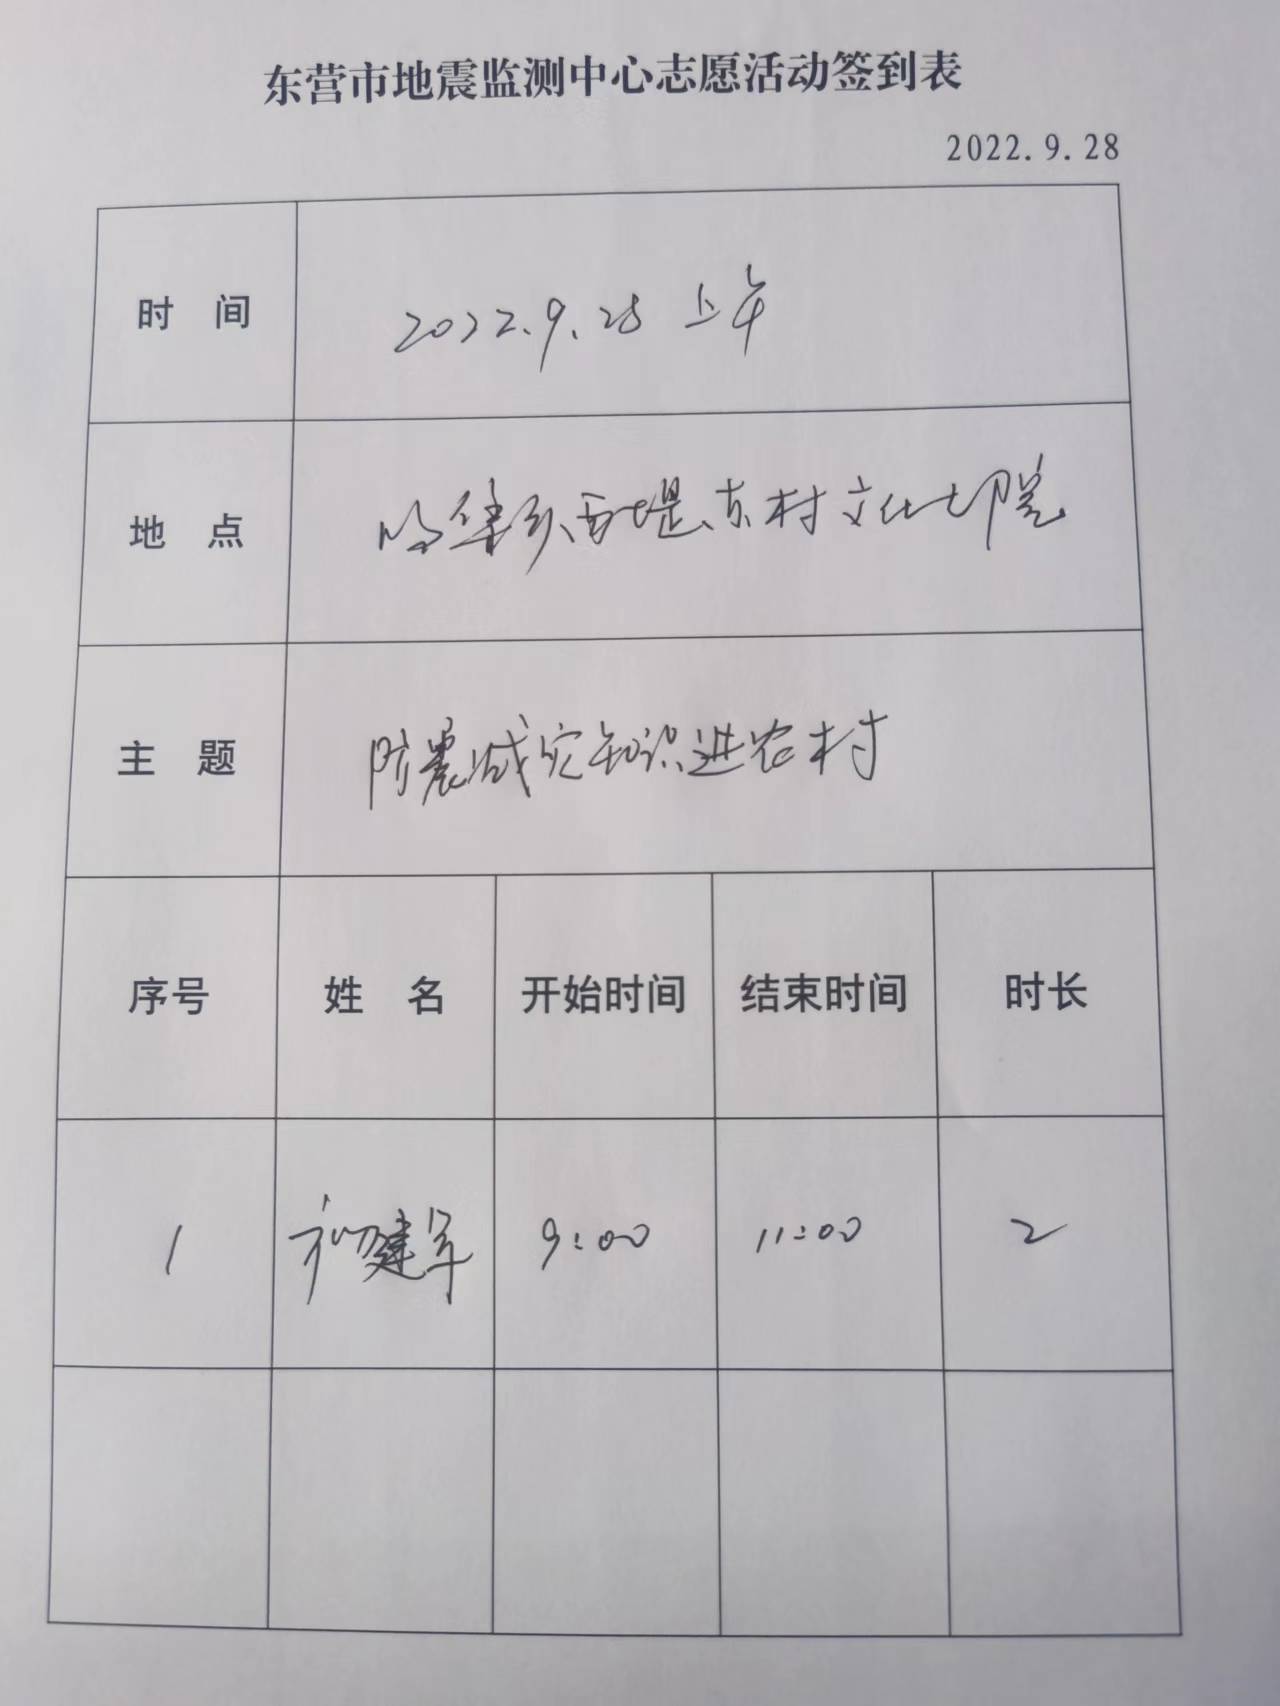 东营市地震监测中心志愿活动签到表
2022.9.28
时 间 2022.9.28 上午
地 点 西堤东村文化大院
主 题 防震减灾知识进农村
序号 姓 名 开始时间 结束时间 时长
1 建军 9:00 11:00 2